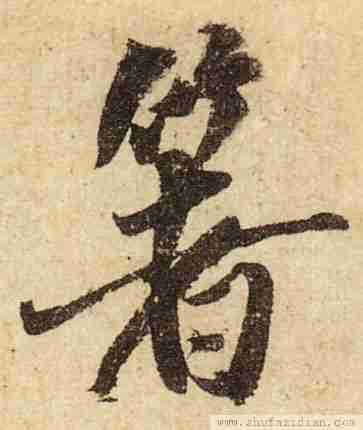 箸
www.shufazidian.com